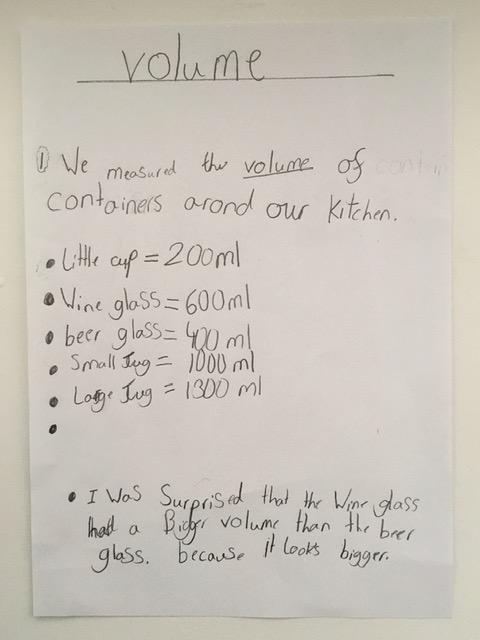 volume
① We measured the volume of contain
containers arond our kitchen.
• Little cup = 200ml
• Wine glass = 600ml
• beer glass = 400 ml
• Small Jug = 1000 ml
• Large Jug = 1300 ml
•
• I was Surprised that the Wine glass
had a Bigger volume than the beer
glass. because it looks bigger.